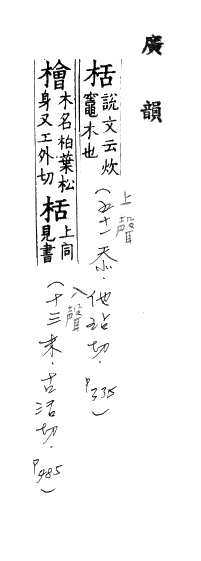 廣韻
栝說文云炊
竈木也
(上聲
五十一忝.他玷切.P335)
檜木名柏葉松
身又工外切
栝上同
見書
(入聲
十三末.古活切.P485)